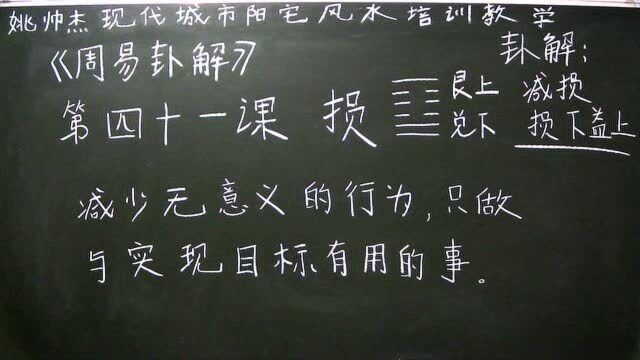 姚帅杰现代城市阳宅风水培训教学
《周易卦解》
卦解:
第四十一课 损 艮上 减损
兑下 损下益上
减少无意义的行为,只做
与实现目标有用的事。